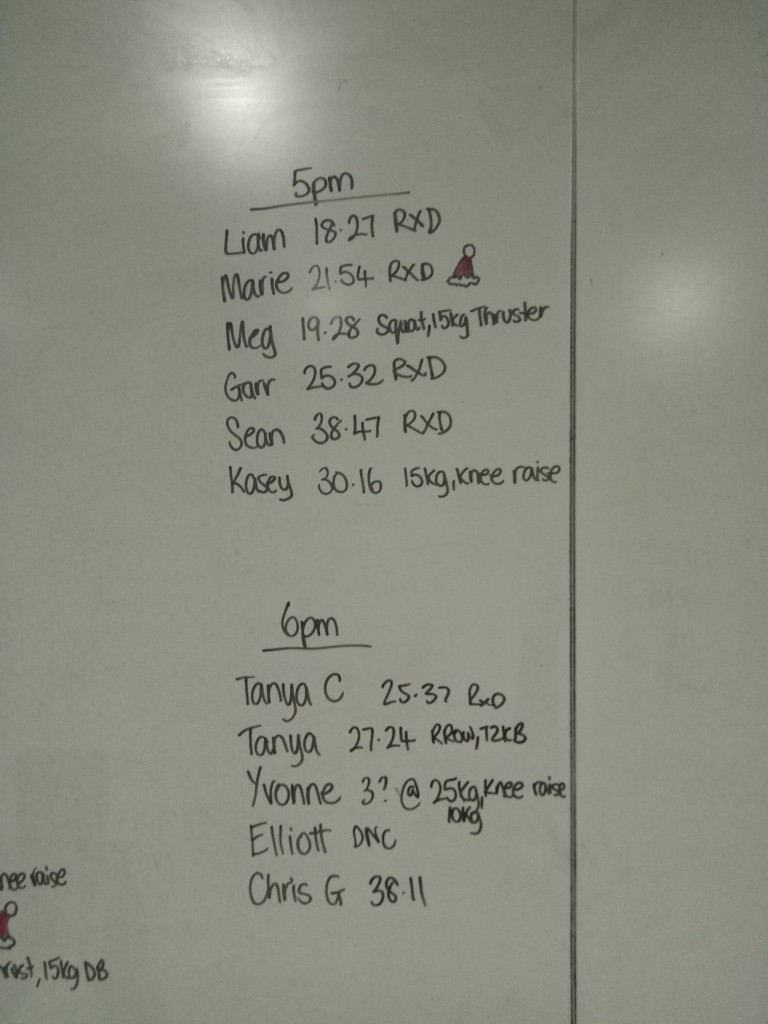 5pm
Liam 18.27 RXD
Marie 21.54 RXD
Meg 19.28 Squat, 15kg Thruster
Garr 25.32 RXD
Sean 38.47 RXD
Kasey 30.16 15kg, Knee raise
6pm
Tanya C 25.37 RxD
Tanya 27.24 RRow, T2KB
Yvonne 3? @ 25kg, Knee raise
10kg
Elliott DNC
Chris G 38.11
nee raise
15kg DB